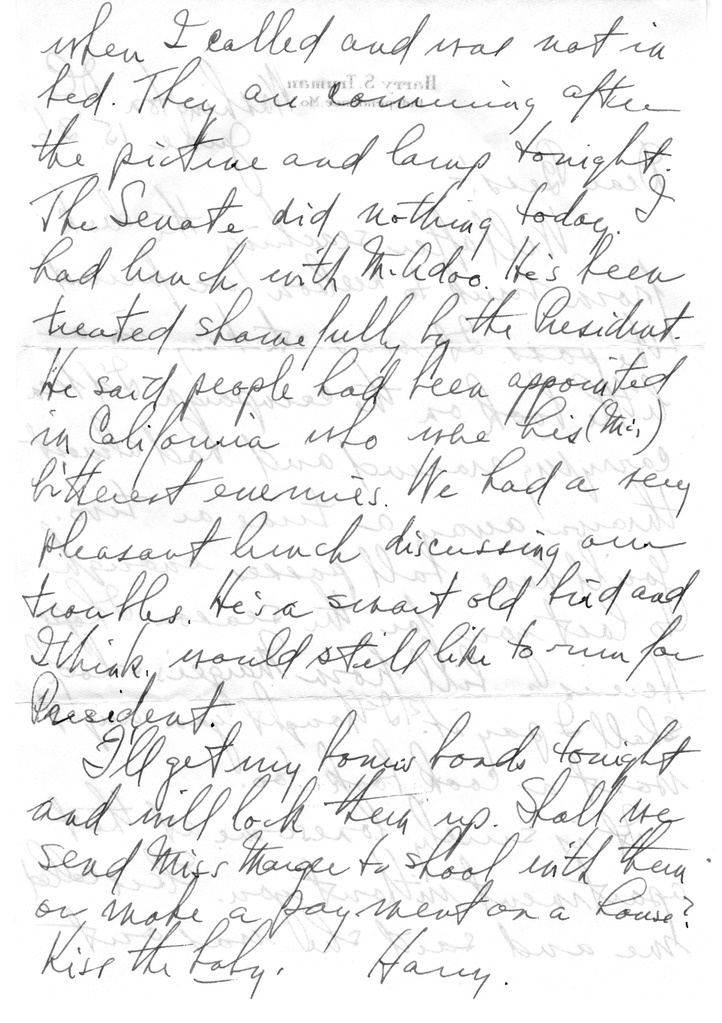 when I called and was not in
bed. They are comming after
the picture and lamp tonight.
The Senate did nothing today. I
had lunch with McAdoo. He's been
treated shamefully by the President.
He said people had been appointed
in California who were his (Mc's)
bitterest enemies. We had a very
pleasant lunch discussing our
troubles. He's a smart old bird and
I think, would still like to run for
President.
I'll get my bonus bonds tonight
and will lock them up. Shall we
send Miss Margie to shool with them
or make a payment on a house?
Kiss the baby. Harry.